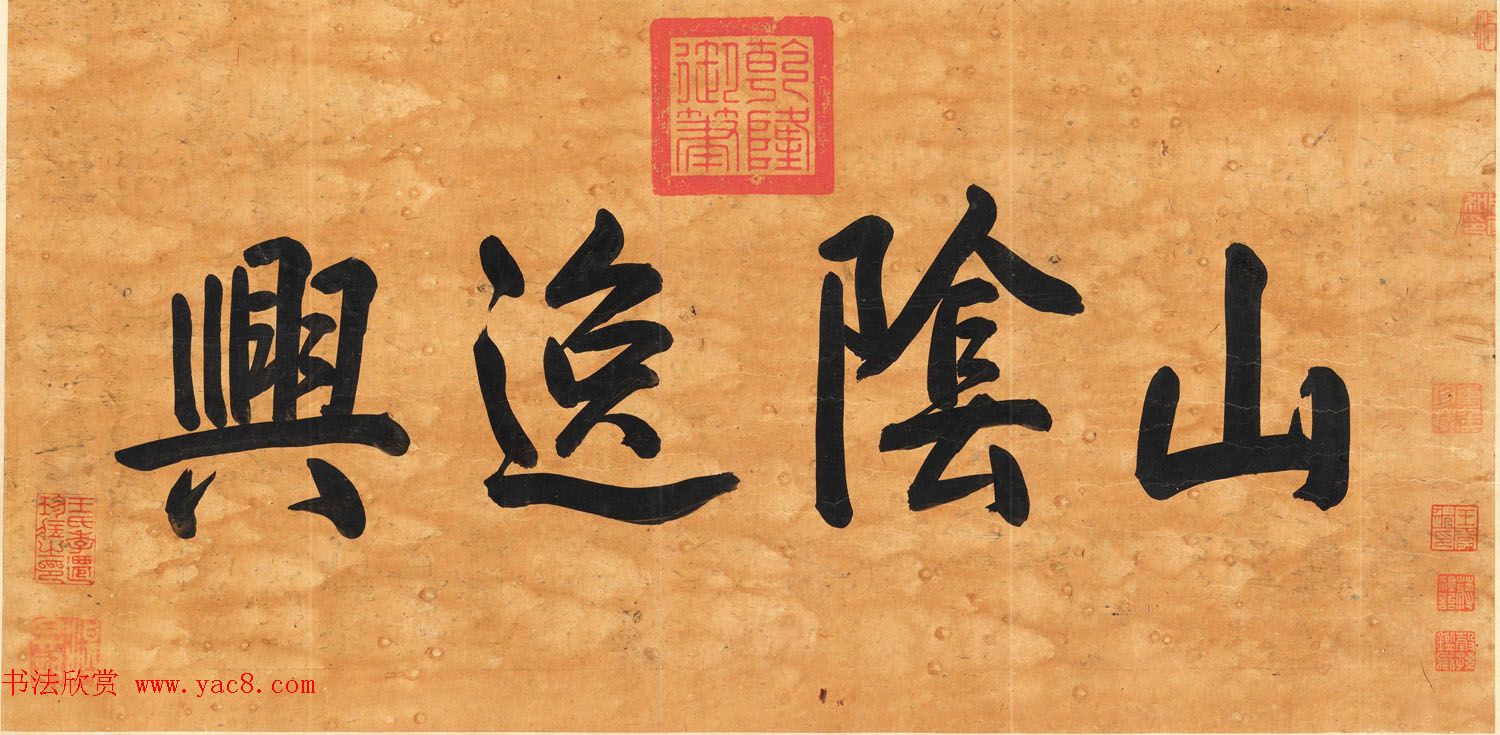 乾隆御筆
山陰逸興
王氏季遷珍藏之印
书法欣赏 www.yac8.com